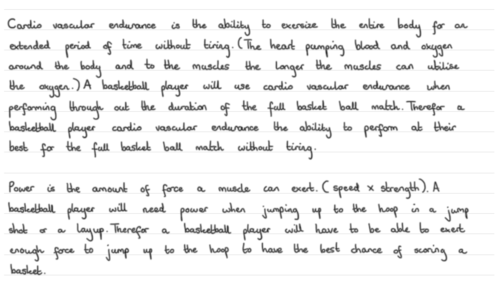 Cardio vascular endurance is the ability to exercize the entire body for an
extended period of time without tiring. (The heart pumping blood and oxygen
around the body and to the muscles the longer the muscles can utilise
the oxygen.) A basketball player will use cardio vascular endurance when
performing through out the duration of the full basket ball match. Therefor a
basketball player cardio vascular endurance the ability to perform at their
best for the full basket ball match without tiring.
Power is the amount of force a muscle can exert. (speed x strength). A
basketball player will need power when jumping up to the hoop in a jump
shot or a layup. Therefor a basketball player will have to be able to exert
enough force to jump up to the hoop to have the best chance of scoring a
basket.